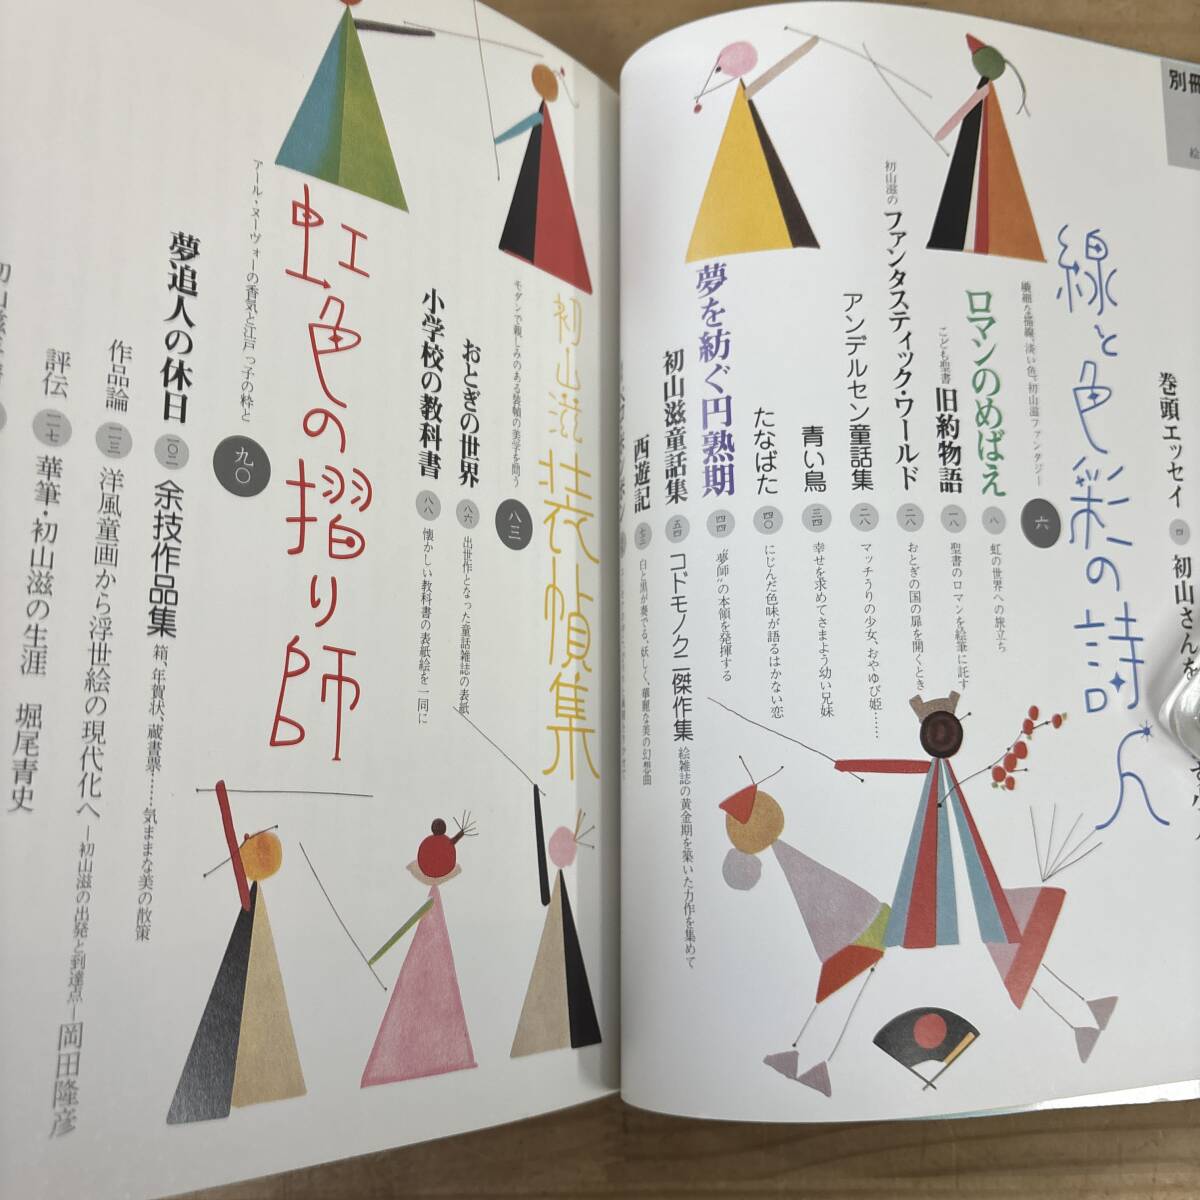 別冊
絵
巻頭エッセイ
四
初山さんを
線と色彩の詩人
繊細な描線、淡い色、初山滋ファンタジー
六
ロマンのめばえ
八
虹の世界への旅立ち
こども聖書
旧約物語
一八
聖書のロマンを絵筆に託す
初山滋の
ファンタスティック・ワールド
二八
おとぎの国の扉を開くとき
アンデルセン童話集
二八
マッチうりの少女、おやゆび姫……
青い鳥
三四
幸せを求めてさまよう幼い兄妹
たなばた
四〇
にじんだ色味が語るはかない恋
夢を紡ぐ円熟期
四四
“夢師”の本領を発揮する
初山滋童話集
五四
コドモノクニ傑作集
絵雑誌の黄金期を築いた力作を集めて
西遊記
七三
白と黒が奏でる、妖しく、華麗な美の幻想曲
初山滋装幀集
モダンで親しみのある装幀の美学を問う
八三
おとぎの世界
八六
出世作となった童話雑誌の表紙
小学校の教科書
八八
懐かしい教科書の表紙絵を一同に
虹色の摺り師
アール・ヌーヴォーの香気と江戸っ子の粋と
九〇
夢追人の休日
一〇二
余技作品集
箱、年賀状、蔵書票……気ままな美の散策
作品論
一一三
洋風童画から浮世絵の現代化へ
―初山滋の出発と到達点―
岡田隆彦
評伝
一一七
華筆・初山滋の生涯
堀尾青史